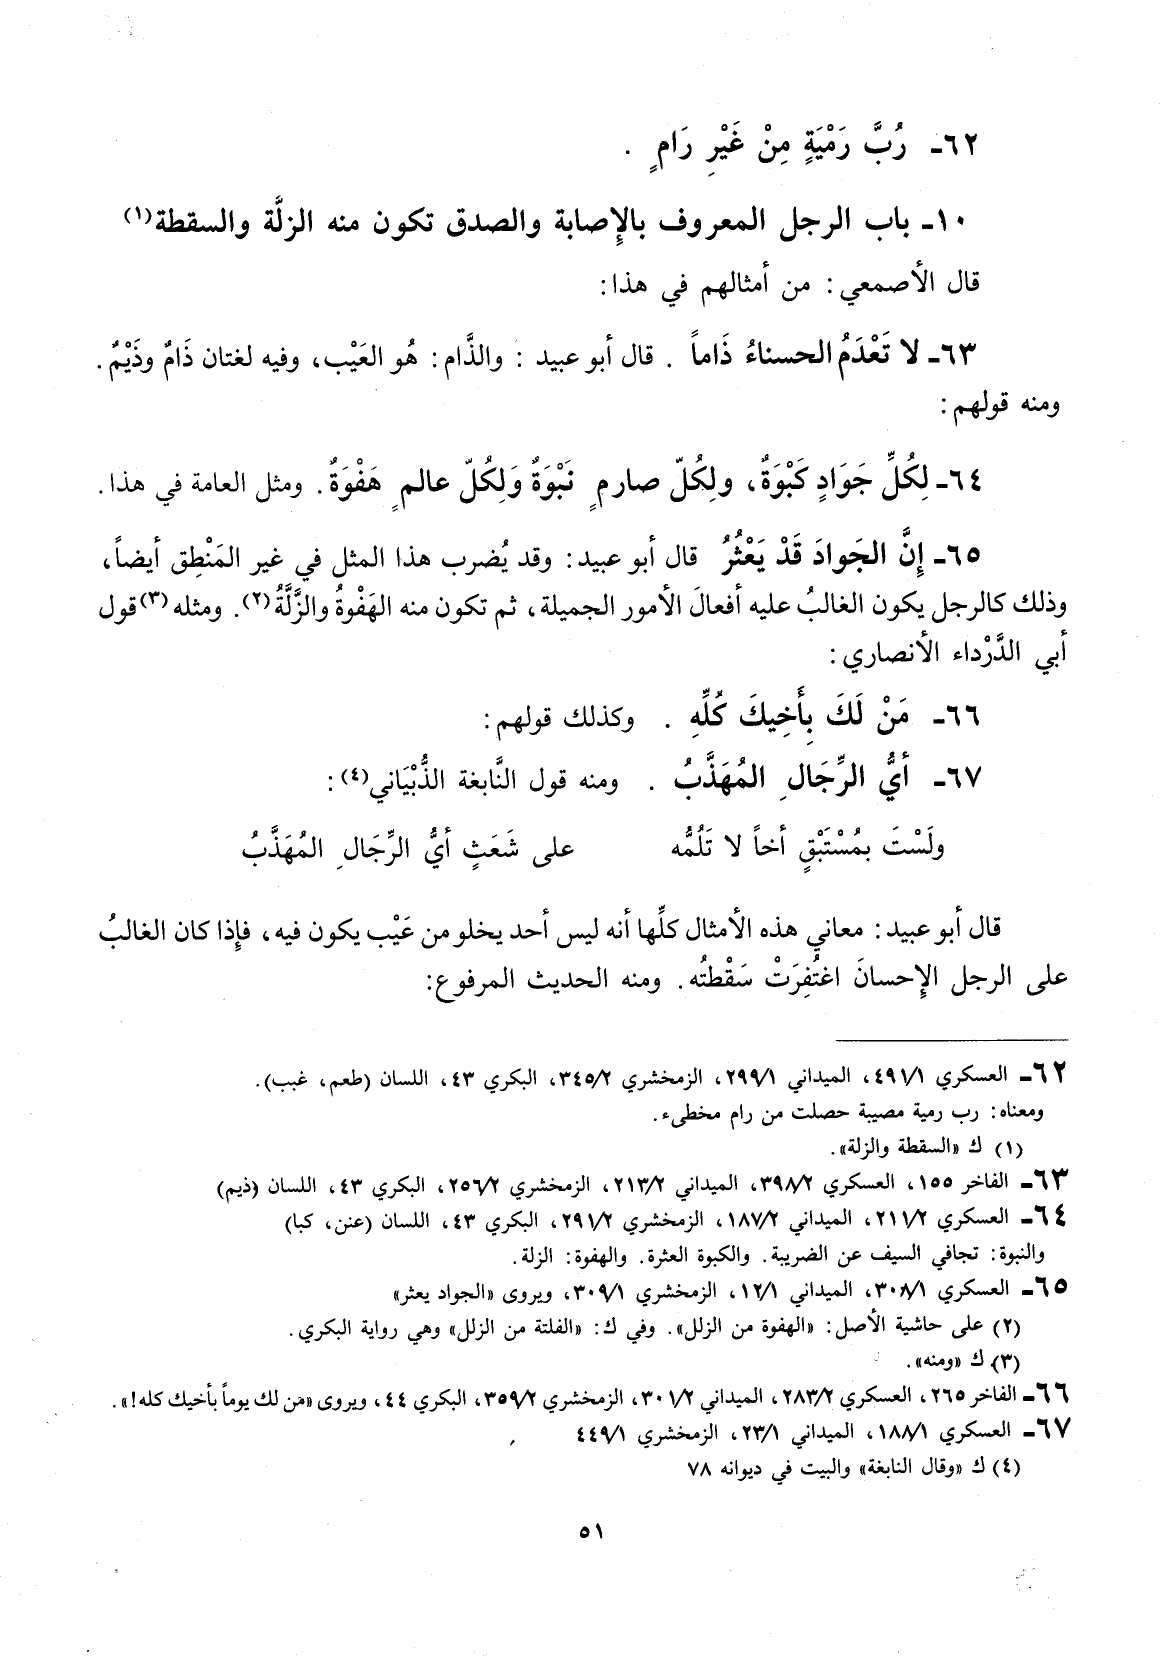 ٦٢ـ رُبَّ رَمْيَةٍ مِنْ غَيْرِ رَامٍ .
١٠ـ باب الرجل المعروف بالإصابة والصدق تكون منه الزلَّة والسقطة(١)
قال الأصمعي: من أمثالهم في هذا:
٦٣ـ لا تَعْدَمُ الحسناءُ ذَاماً . قال أبو عبيد : والذَّام: هُو العَيْب، وفيه لغتان ذَامٌ وذَيْمٌ.
ومنه قولهم:
٦٤ـ لِكُلِّ جَوَادٍ كَبْوَةٌ، ولِكُلّ صارمٍ نَبْوَةٌ وَلِكُلّ عالمٍ هَفْوَةٌ. ومثل العامة في هذا.
٦٥ـ إنَّ الجَوادَ قَدْ يَعْثُرُ قال أبو عبيد: وقد يُضرب هذا المثل في غير المَنْطِق أيضاً،
وذلك كالرجل يكون الغالبُ عليه أفعالَ الأمور الجميلة، ثم تكون منه الهَفْوةُ والزَّلَّةُ(٢). ومثله(٣) قول
أبي الدَّرْداء الأنصاري:
٦٦ـ مَنْ لَكَ بِأَخِيكَ كُلِّهِ . وكذلك قولهم:
٦٧ـ أيُّ الرِّجَالِ المُهَذَّبُ . ومنه قول النَّابغة الذُّبْيَاني(٤):
ولَسْتَ بمُسْتَبْقٍ أخاً لا تَلُمُّه على شَعَثٍ أيُّ الرِّجَالِ المُهَذَّبُ
قال أبو عبيد: معاني هذه الأمثال كلِّها أنه ليس أحد يخلو من عَيْب يكون فيه، فإذا كان الغالبُ
على الرجل الإحسانَ اغتُفِرَتْ سَقْطتُه. ومنه الحديث المرفوع:
٦٢ـ العسكري ٤٩١/١، الميداني ٢٩٩/١، الزمخشري ٣٤٥/٢، البكري ٤٣، اللسان (طعم، غبب).
ومعناه: رب رمية مصيبة حصلت من رام مخطىء.
(١) ك «السقطة والزلة».
٦٣ـ الفاخر ١٥٥، العسكري ٣٩٨/٢، الميداني ٢١٣/٢، الزمخشري ٢٥٦/٢، البكري ٤٣، اللسان (ذيم)
٦٤ـ العسكري ٢١١/٢، الميداني ١٨٧/٢، الزمخشري ٢٩١/٢، البكري ٤٣، اللسان (عنن، كبا)
والنبوة: تجافي السيف عن الضريبة. والكبوة العثرة. والهفوة: الزلة.
٦٥ـ العسكري ٣٠٨/١، الميداني ١٢/١، الزمخشري ٣٠٩/١، ويروى «الجواد يعثر»
(٢) على حاشية الأصل: «الهفوة من الزلل». وفي ك: «الفلتة من الزلل» وهي رواية البكري.
(٣) ك «ومنه».
٦٦ـ الفاخر ٢٦٥، العسكري ٢٨٣/٢، الميداني ٣٠١/٢، الزمخشري ٣٥٩/٢، البكري ٤٤، ويروى «من لك يوماً بأخيك كله!».
٦٧ـ العسكري ١٨٨/١، الميداني ٢٣/١، الزمخشري ٤٤٩/١
(٤) ك «وقال النابغة» والبيت في ديوانه ٧٨
٥١